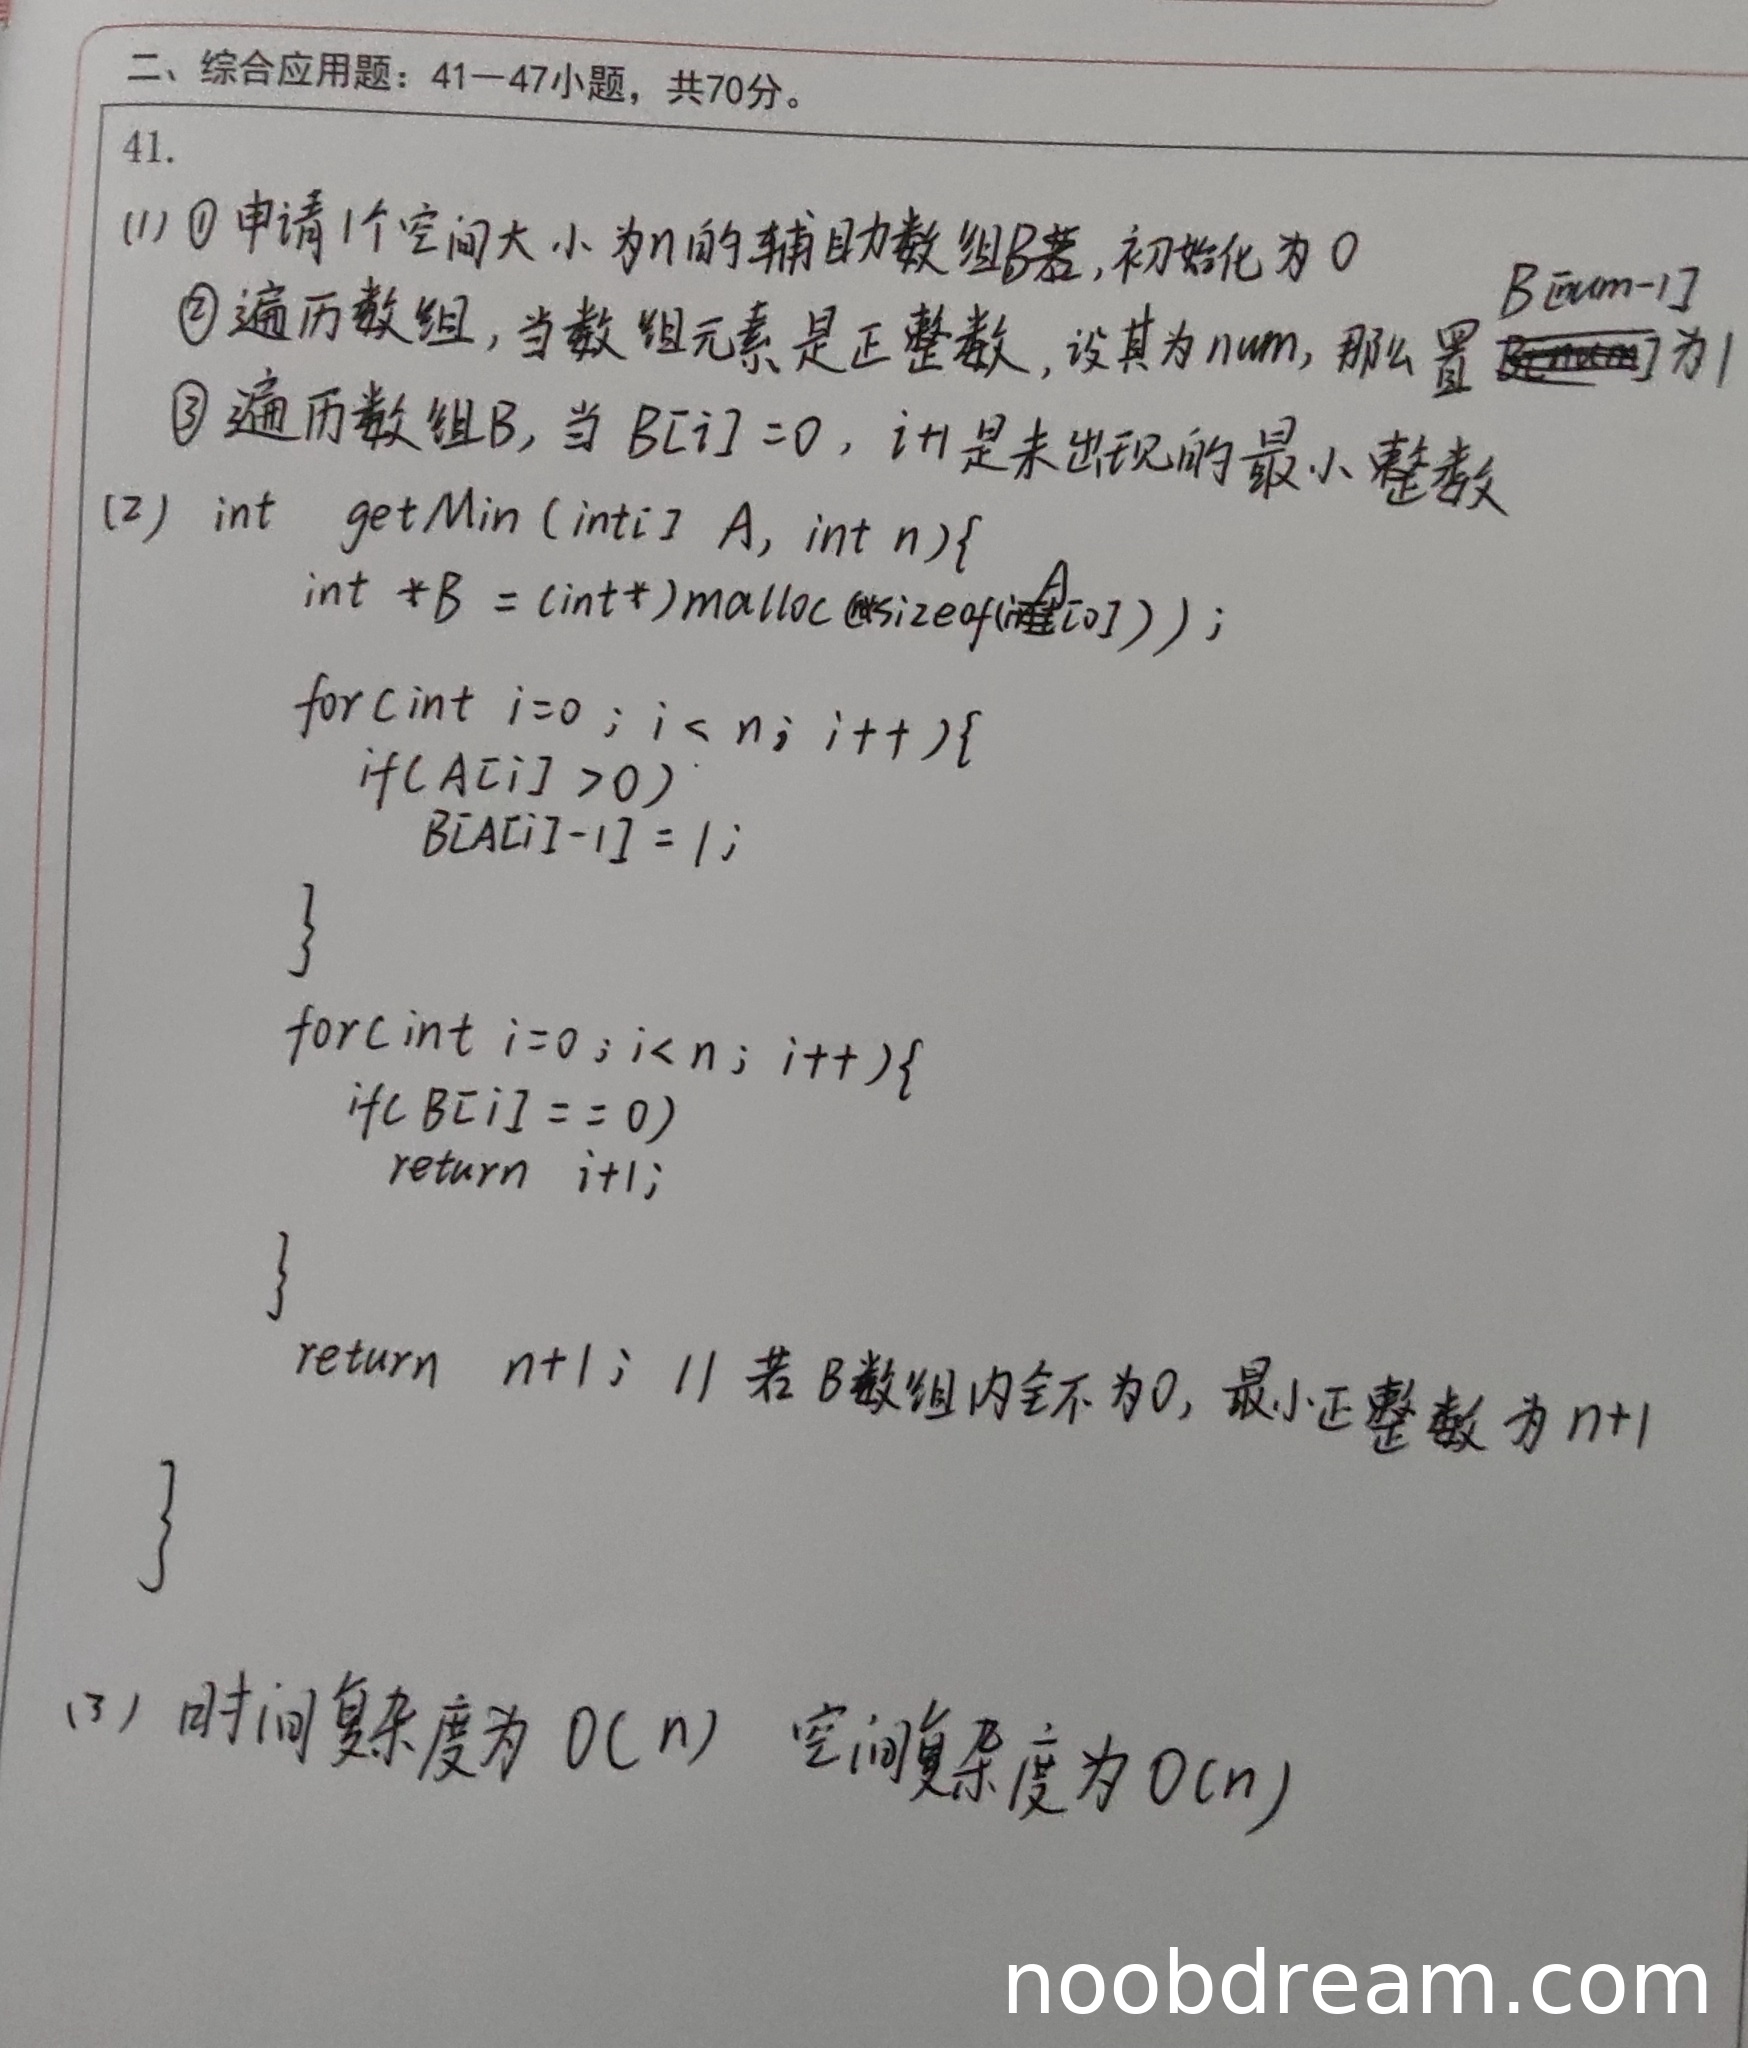 二、综合应用题：41—47小题，共70分。
41.
(1) ① 申请1个空间大小为n的辅助数组B,初始化为0
② 遍历数组,当数组元素是正整数,设其为num,那么置 B[num-1] 为1
③ 遍历数组B,当 B[i]=0, i+1是未出现的最小整数
(2) int getMin(int[] A, int n){
int *B = (int*)malloc(n*sizeof(A[0]));
for(int i=0; i<n; i++){
if(A[i]>0)
B[A[i]-1]=1;
}
for(int i=0;i<n; i++){
if(B[i]==0)
return i+1;
}
return n+1; // 若B数组内全不为0, 最小正整数为n+1
}
(3) 时间复杂度为 O(n) 空间复杂度为O(n)
noobdream.com